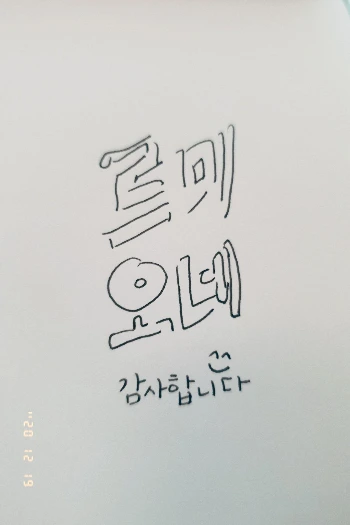 르미
오네
감사합니다^^
'20 12 19